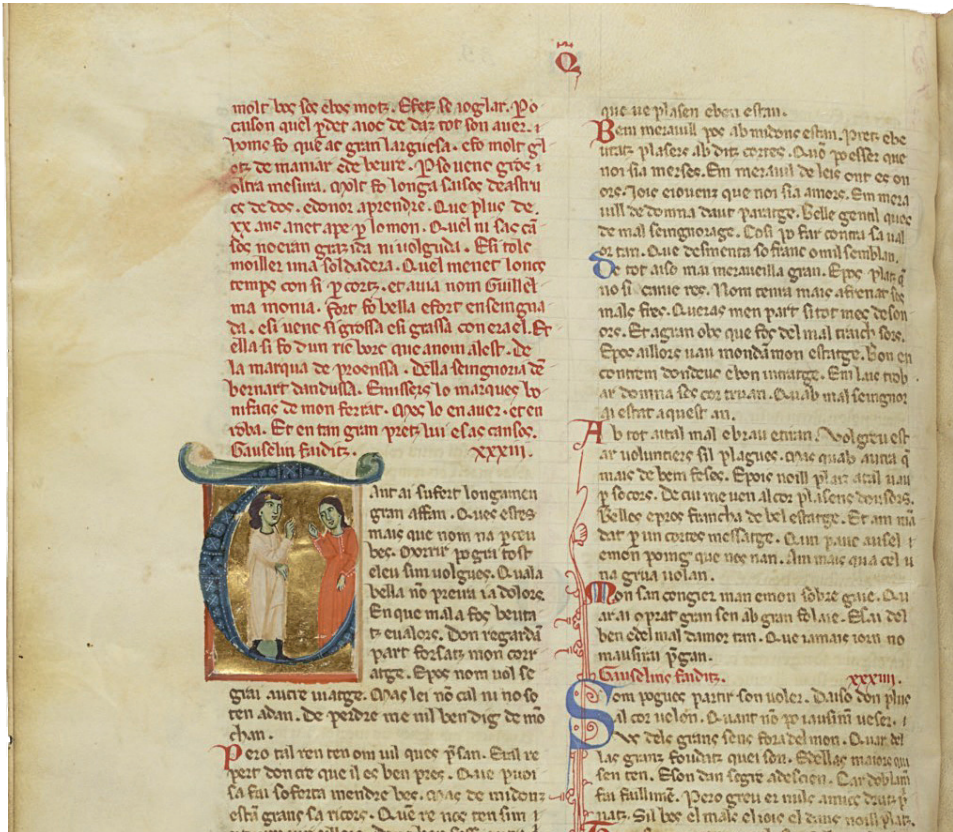 Q̃
molt bos sos ebos motz. Efetz se ioglar. ꝑo
caison quel ꝑdet a ioc de datz tot son auer. i
home fo que ac gran larguesa. efo molt gl
otz de maniar e de beure. ꝑ so uenc gros i
oltra mesura. Molt fo longa saisos deastru
cs de dos. edonor aprendre. Que plus de
.xx. ans anet a pe ꝑ lo mon. Quel ni sas cā
sos no eran grazida ni volguda. Esi tolc
moiller una soldadera. Quel menet loncs
temps con si ꝑ cortz. et auia nom Guillel
ma monia. fort fo bella efort enseingna
da. esi uenc si grossa esi grassa con era el. Et
ella si fo dun ric borc que a nom alest. de
la marqua de proenssa. della seingnoria dē
bernart dandussa. Emissers lo marques bo
nifacis de mon ferrat. Mes lo en auer. et en
roba. Et en tan gran pretz lui e sas cansos.
Gauselin faiditz. xxxiii.
Tant ai sufert longamen
gran affan. Ques estes
mais que nom na perceu
bes. Morrir pogri tost
eleu sim volgues. Quala
bella nō preira ia dolors.
En que mala fos beuta
tz e ualors. don regardā
part forsatz mon corr
atge. E pos nom uol se
grai autre uiatge. Mas lei nō cal ni no so
ten adan. de perdre me nil ben dig de mō
chan.
Pero tal ren ten om uil ques ꝑsan. Etal re
pert don cre que il es ben pres. Que puoi
sa fai soferta mendre bes. mas de midonz
está grans sa ricors. Que re nos ten sim i
que ue plasen ebon estan.
Bem merauill pos ab midons estan. Pretz ebe
utatz plasers ab ditz cortes. Quō po esser que
noi sia merses. Em meravil de leis ont es on
ors. Joic eiouenz que non sia amors. Em mera
uill de domna daut paratge. Belle gentil ques
de mal seingnorage. Cosi po far contra sa ual
or tan. Que desmenta so franc omil semblan.
De tot aiso mai meraueilla gran. E pos platz q̄
no si canie res. Nom tenra mais afrenat sos
mals fres. Queras men part si tot mes deson
ors. Et agran obs que fos del mal traich sors.
E pos aillors uau mondā mon estatge. Bon en
contrem don deus ebon intratge. Em lais trob
ar domna ses cor truan. Quab mal seingnor
ai estat aquest an.
Ab tot aital mal ebrau etiran. Volgreu est
ar volunters sil plagues. mas quab autra q̄
mais de bem feses. E pois noill platz atal uau
ꝑ socors. De cui me uen al cor plasens dousors.
Belles epros francha de bel estatge. Et am mā
dat ꝑ un cortes messatge. Qun pauc ausel i
emon poing que nos nan. Am mais qua cel u
na grua uolan.
Mon san congier man emon sobre gaie. Qu
ar ai oprat gran sen ab gran folaie. E lai del
ben edel mal damor tan. Que iamais iorn no
mausirai ꝑgan.
Gauselins faiditz. xxxiiii.
Som pogues partir son uoler. Daiso don plus
al cor uolon. Quant nō po iausim ueser. i
Vos dels grans sens fora del mon. Quar del
las granz foudatz quei son. Es dellas maiors qui
sen ten. E son dan segre ad escien. Car doblam̄
fai faillimē. Pero greu er nuls amics drutz p̄
natz. Sil bes el mals el iois el dans noill platz.